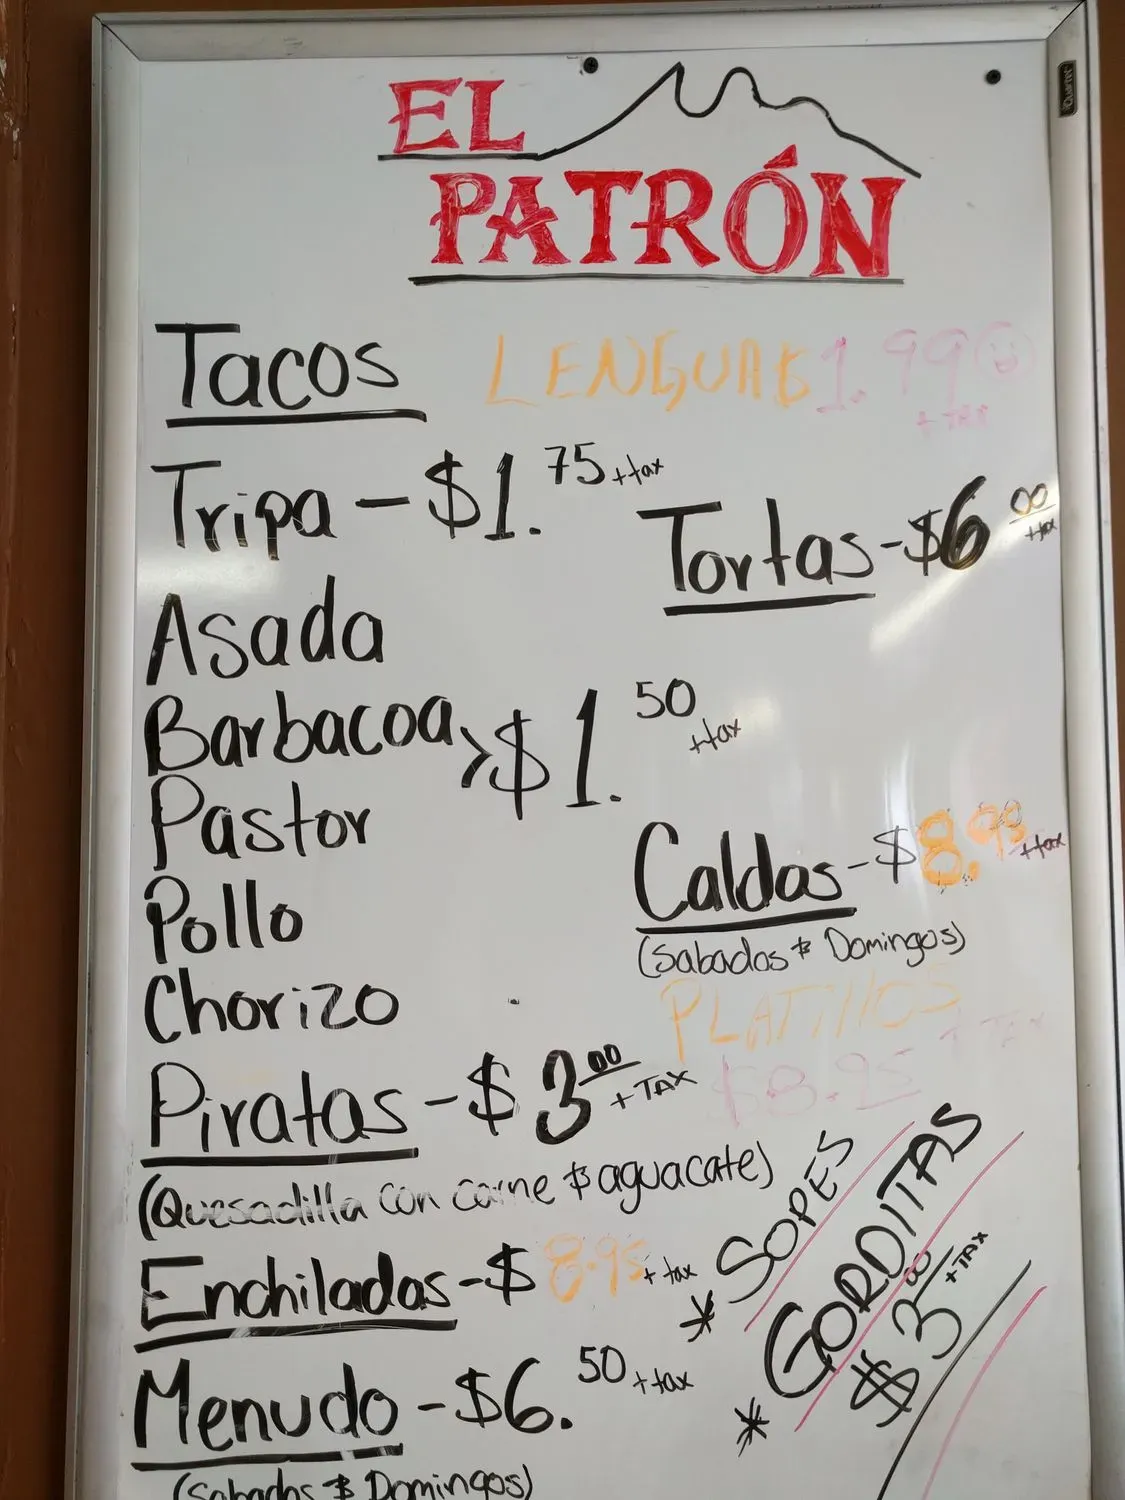 Quartet
EL
PATRÓN
Tacos
LENGUA 1.99
+ TAX
Tripa - $1.75 + tax
Tortas - $6 00 + tax
Asada
Barbacoa
Pastor
> $1.50 + tax
Pollo
Chorizo
Caldos - $8.95 + tax
(Sabados & Domingos)
PLATILLOS
$8.95 + TAX
Piratas - $3 00 + TAX
(Quesadilla con carne & aguacate)
Enchiladas - $8.95 + tax
Menudo - $6.50 + tax
(Sabados & Domingos)
* SOPES
* GORDITAS
$3 00 + TAX